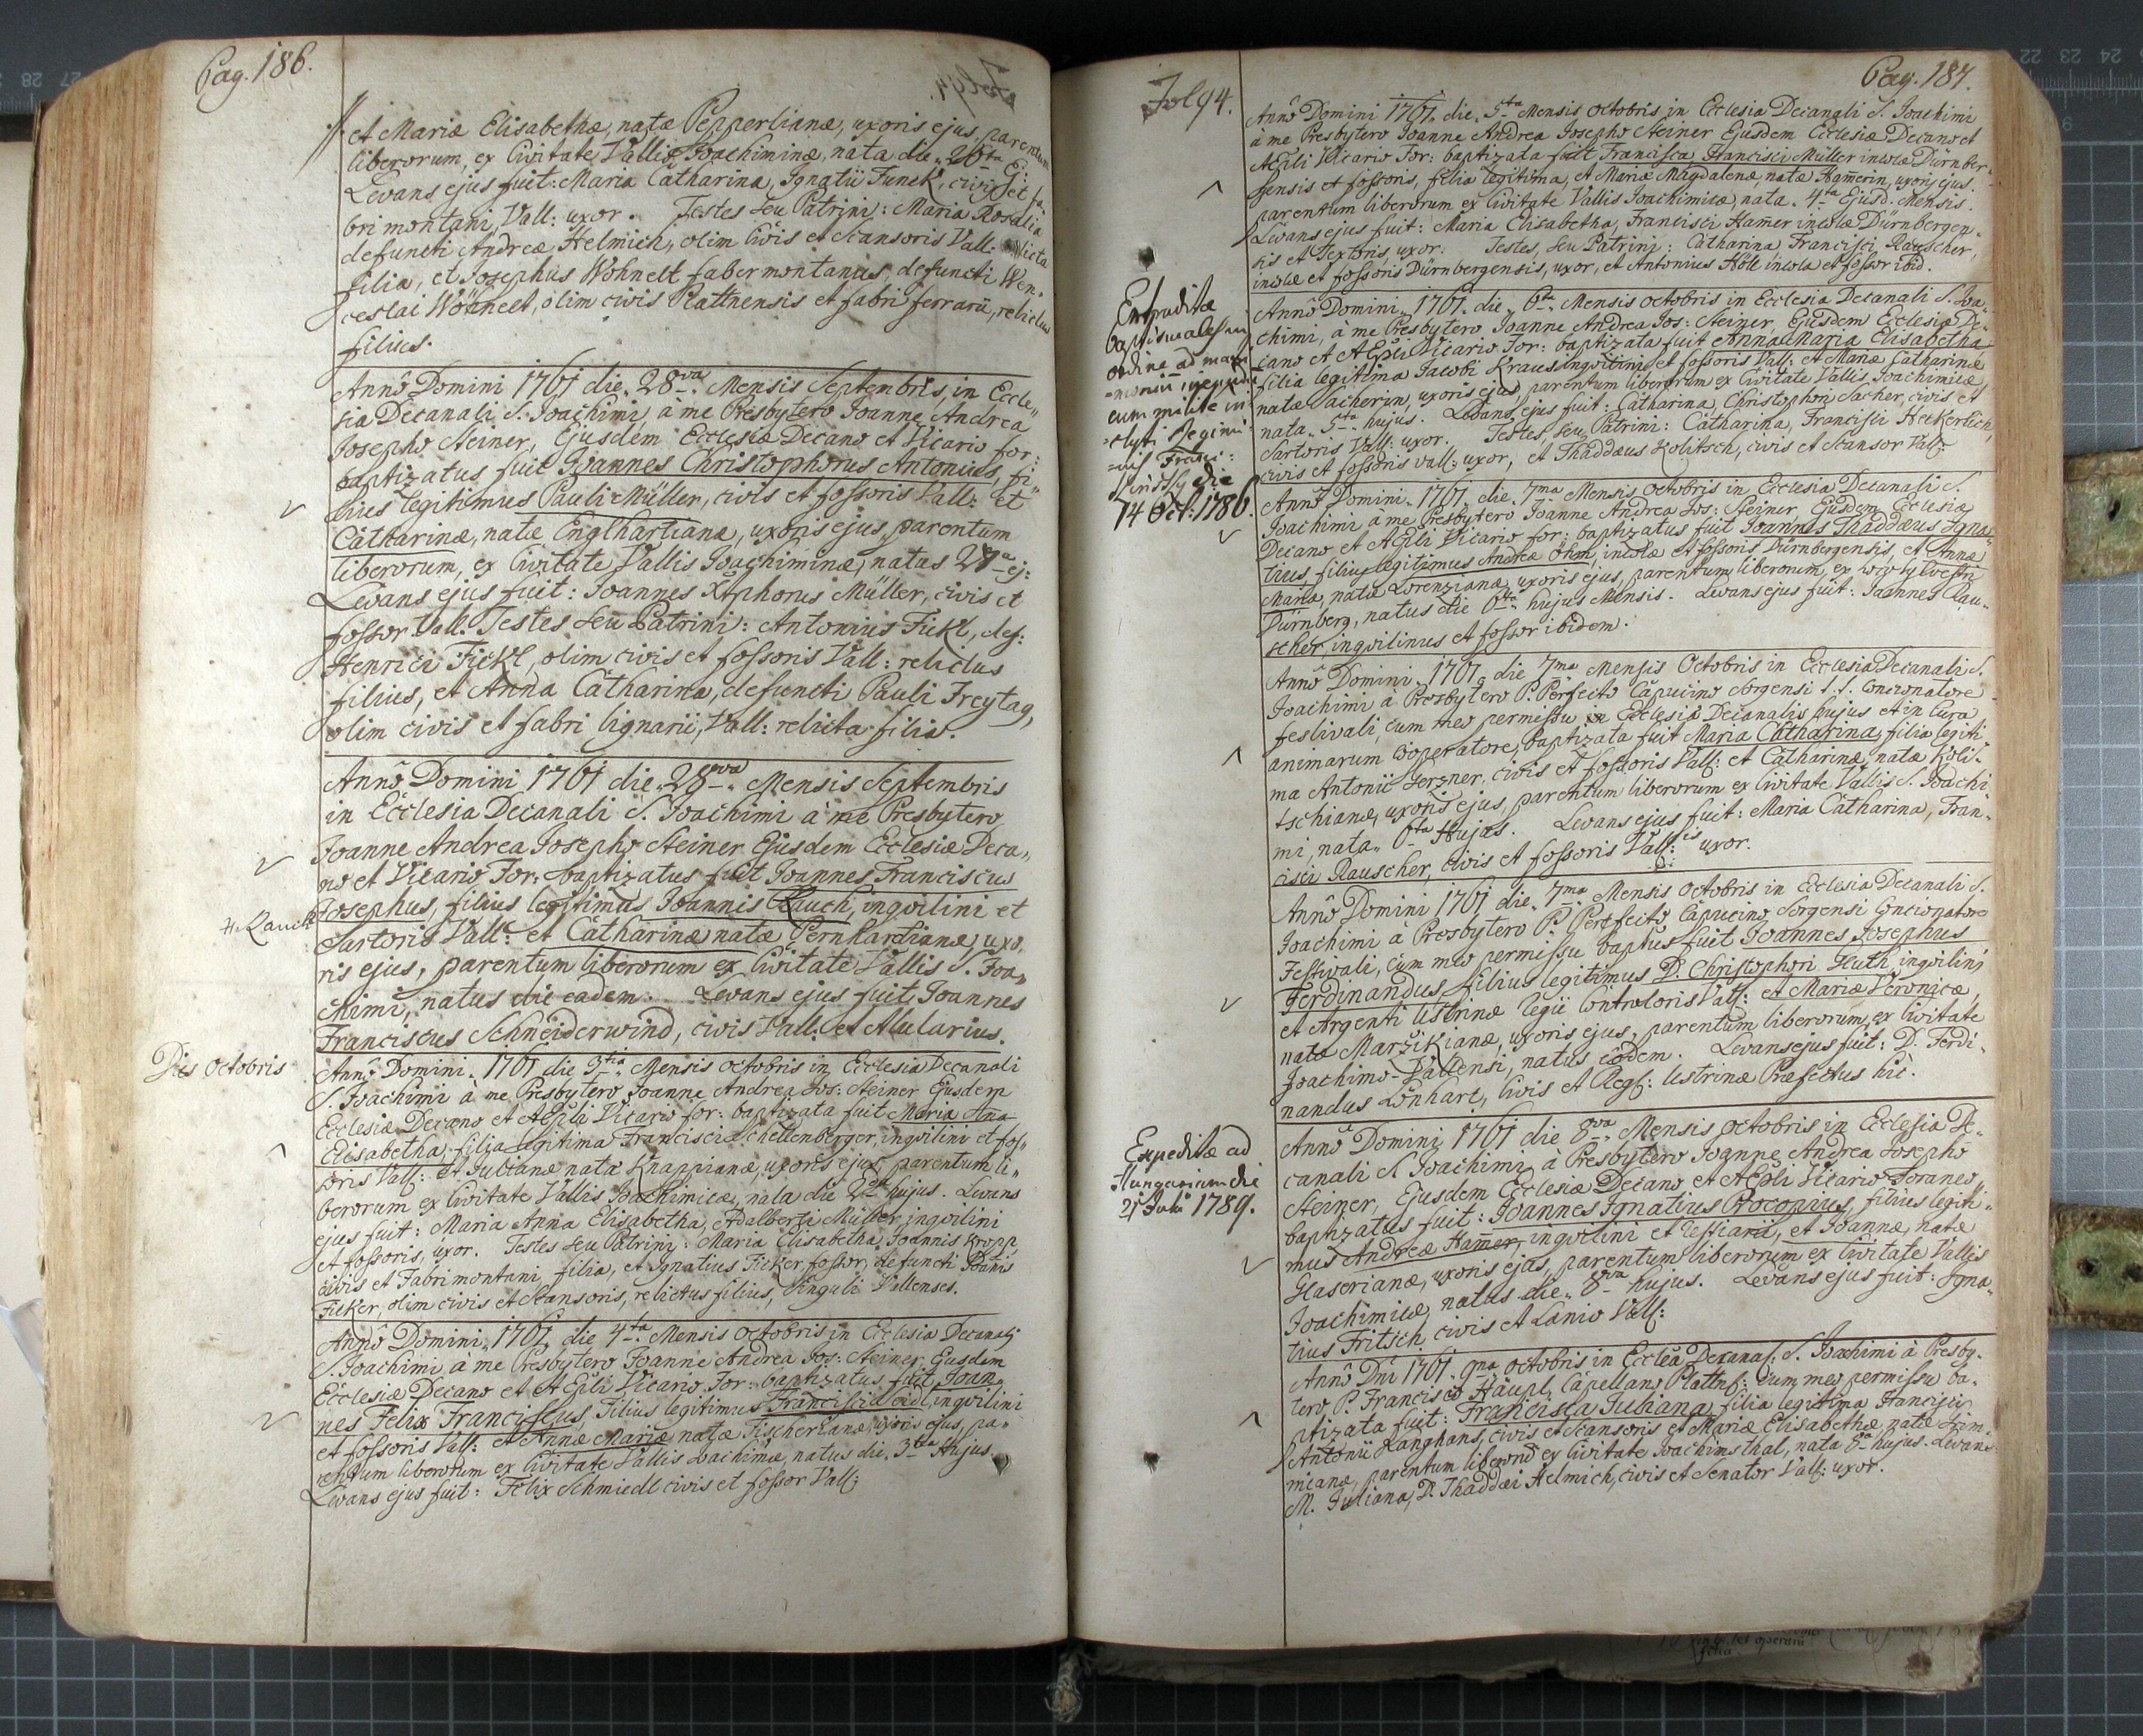 Pag. 186.
et Mariæ Elisabethæ, natæ Pepperlianæ, uxoris ejus, parentum
liberorum, ex Civitate Vallis Joachiminæ, nata die 26ta Ej:
Levans ejus fuit: Maria Catharina, Ignatii Funck, civis et fa-
bri montani, Vall: uxor. Testes seu Patrini: Maria Rosalia
defuncti Andreæ Helmich, olim Civis et Scansoris Vall: relicta
filia, et Josephus Wöhnelt faber montanus, defuncti Wen-
ceslai Wöhnelt, olim civis Plattnensis et fabri ferrarii, relictus
filius.
Annô Domini 1761 die 28va Mensis Septembris, in Eccle-
sia Decanali S. Joachimi à me Presbytero Joanne Andrea
Josepho Steiner, Ejusdem Ecclesiæ Decano et Vicario for:
baptizatus fuit Joannes Christophorus Antonius, fi-
lius legitimus Pauli Müller, civis et fossoris Vall: et
Catharinæ, natæ Englhartianæ, uxoris ejus, parentum
liberorum, ex Civitate Vallis Joachiminæ, natus 27a ej:
Levans ejus fuit: Joannes Xtphorus Müller, civis et
fossor Vall. Testes seu Patrini: Antonius Fickl, def:
Henrici Fickl, olim civis et fossoris Vall: relictus
filius, et Anna Catharina, defuncti Pauli Freytag,
olim civis et fabri lignarii, Vall: relicta filia.
Annô Domini 1761 die 28va Mensis Septembris
in Ecclesia Decanali S. Joachimi à me Presbytero
Joanne Andrea Josepho Steiner Ejusdem Ecclesiæ Deca-
no et Vicario For: baptizatus fuit Joannes Franciscus
Josephus, filius legitimus Joannis Rauch, inquilini et
Rauch
Sartoris Vall: et Catharinæ natæ Pernhartianæ, uxo-
ris ejus, parentum liberorum ex Civitate Vallis S. Joa-
chimi, natus die eadem. Levans ejus fuit, Joannes
Franciscus Schneiderwind, civis Vall: et Alutarius.
Dies Octobris
Annô Domini 1761 die 3tia Mensis Octobris in Ecclesia Decanali
S. Joachimi à me Presbytero Joanne Andrea Jos: Steiner Ejusdem
Ecclesiæ Decano et AEpli Vicario for: baptizata fuit Maria Anna
Elisabetha, filia legitima Francisci Schellenberger, inquilini et fos-
soris Vall: et Julianæ natæ Knappianæ, uxoris ejus, parentum li-
berorum ex Civitate Vallis Joachimicæ, nata die 2da hujus. Levans
ejus fuit: Maria Anna Elisabetha, Adalberti Müller, inquilini
et fossoris, uxor. Testes seu Patrini: Maria Elisabetha, Joannis Kropp
civis et Fabri montani, filia, et Ignatius Ficker, fossor, defuncti Joannis
Ficker, olim civis et Scansoris, relictus filius, singuli Vallenses.
Annô Domini 1761 die 4ta Mensis Octobris in Ecclesia Decanali
S. Joachimi, à me Presbytero Joanne Andrea Jos: Steiner, Ejusdem
Ecclesiæ Decano et AEpli Vicario For: baptizatus fuit Joan-
nes Felix Franciscus, Filius legitimus Francisci inquilini
et fossoris Vall: et Annæ Mariæ natæ Fischerianæ, uxoris ejus, pa-
rentum liberorum ex Civitate Vallis Joachimicæ, natus die 3tia hujus
Levans ejus fuit: Felix Schmiedl civis et fossor Vall:
Fol 94.
Pag. 187.
Annô Domini 1761. die 5ta Mensis Octobris in Ecclesia Decanali S. Joachimi
à me Presbytero Joanne Andrea Josepho Steiner Ejusdem Ecclesiæ Decano et
AEpli Vicario For: baptizata fuit Francisca, Francisci Müller incolæ Dürnber-
gensis et fossoris, filia legitima, et Mariæ Magdalenæ, natæ Ham̄erin, uxoris ejus.
parentum liberorum ex Civitate Vallis Joachimicæ, nata 4ta Ejusd. Mensis.
Levans ejus fuit: Maria Elisabetha, Francisci Ham̄er incolæ Dürnbergen-
sis et Textoris, uxor. Testes, seu Patrini: Catharina Francisci Rauscher,
incolæ et fossoris Dürnbergensis, uxor, et Antonius Höll incola et fossor ibid.
Extraditæ
baptismales in
ordine ad matri
-monium
cum milite in
-clyti Regimi-
-nis
die
14 Oct: 1786.
Annô Domini 1761. die 6ta Mensis Octobris in Ecclesia Decanali S. Joa-
chimi, à me Presbytero Joanne Andrea Jos: Steiner, Ejusdem Ecclesiæ De-
cano et AEpli Vicario For: baptizata fuit Anna Maria Elisabetha
filia legitima Jacobi Kraus inquilini et fossoris Vall: et Mariæ Catharinæ
natæ Sacherin, uxoris ejus, parentum liberorum ex Civitate Vallis Joachimicæ,
nata 5ta hujus. Levans ejus fuit: Catharina, Christophori Sacher, civis et
Sartoris Vall: uxor. Testes, seu Patrini: Catharina, Francisci Heckerlich,
civis et fossoris Vall: uxor, et Thaddæus Kolitsch, civis et Scansor Vall:
Annô Domini 1761. die 7ma Mensis Octobris in Ecclesia Decanali S.
Joachimi à me Presbytero Joanne Andrea Jos: Steiner, Ejusdem Ecclesiæ
Decano et AEpli Vicario for: baptizatus fuit Joannes Thaddæus Igna-
tius, filius legitimus Andreæ Öhm, incolæ et fossoris Dürnbergensis, et Annæ
Mariæ, natæ Lorenzianæ, uxoris ejus, parentum liberorum, ex
Dürnberg, natus die 6ta hujus Mensis. Levans ejus fuit: Joannes Rau-
scher, inquilinus et fossor ibidem.
Annô Domini 1761 die 7ma Mensis Octobris in Ecclesia Decanali S.
Joachimi à Presbytero P. Perfecto Capucino Sorgensi Concionatore
festivali, cum meo permissu in Ecclesia Decanalis hujus et in Cura
animarum Cooperatore, baptizata fuit Maria Catharina, filia legiti-
ma Antonii Forzner, civis et fossoris Vall: et Catharinæ, natæ Koli-
tschianæ, uxoris ejus, parentum liberorum ex Civitate Vallis S. Joachi-
mi, nata 6ta hujus. Levans ejus fuit: Maria Catharina, Fran-
cisci Rauscher, civis et fossoris Vall:is uxor.
Annô Domini 1761 die 7ma Mensis Octobris in Ecclesia Decanali S.
Joachimi à Presbytero P. Perfecto Capucino Sorgensi Concionatore
Festivali, cum meo permissu baptus fuit Joannes Josephus
Ferdinandus, filius legitimus D. Christophori Huth, inquilini
et Argenti Ustrinæ Regii Contraloris Vall: et Mariæ Veronicæ,
natæ Marzikianæ, uxoris ejus, parentum liberorum, ex Civitate
Joachimo-Vallensi, natus eodem. Levans ejus fuit: D. Ferdi-
nandus Lönhart, Civis et Reg: Ustrinæ Præfectus hic.
Expeditæ ad
Hungariam die
21 Julii 1789.
Annô Domini 1761 die 8va Mensis Octobris in Ecclesia De-
canali S. Joachimi, à Presbytero Joanne Andrea Josepho
Steiner, Ejusdem Ecclesiæ Decano et AEpli Vicario Foraneo,
baptizatus fuit: Joannes Ignatius Procopius, filius legiti-
mus Andreæ Ham̄er, inquilini et et Joannæ, natæ
Glaserianæ, uxoris ejus, parentum liberorum ex Civitate Vallis
Joachimicæ, natus die 8va hujus. Levans ejus fuit: Igna-
tius Fritsch, civis et Lanio Vall:
Annô Dni 1761. 9na Octobris in Ecclêa Decanal: S. Joachimi à Presby-
tero P. Francisco Häupl, Capellano Plattn: cum meo permissu ba-
ptizata fuit: Francisca Juliana, filia legitima Francisci
Antonii Langhans, civis et Scansoris et Mariæ Elisabethæ natæ Zim-
micanæ, parentum liberorū ex Civitate Joachimsthal, nata 8va hujus. Levans
M. Juliana, D. Thaddæi Helmich, civis et Senator Vall: uxor.